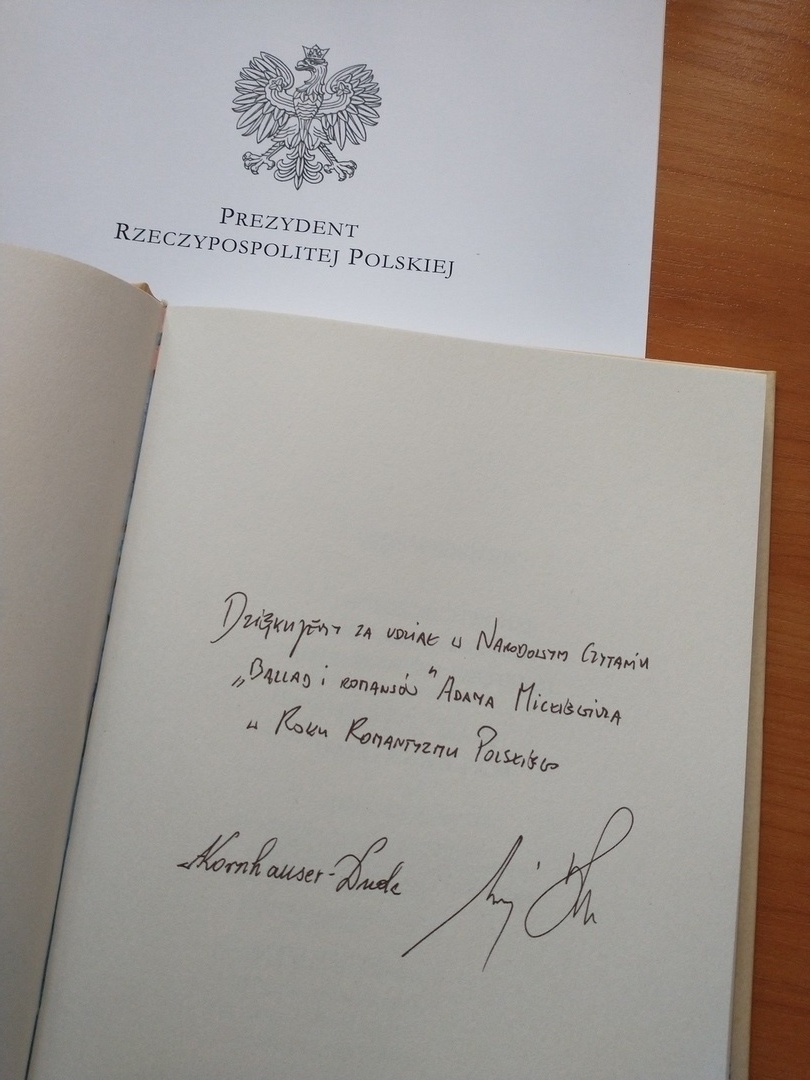 PREZYDENT
RZECZYPOSPOLITEJ POLSKIEJ
Dziękujemy za udział w Narodowym Czytaniu
„Ballad i romansów” Adama Mickiewicza
w Roku Romantyzmu Polskiego
AKornhauser-Duda